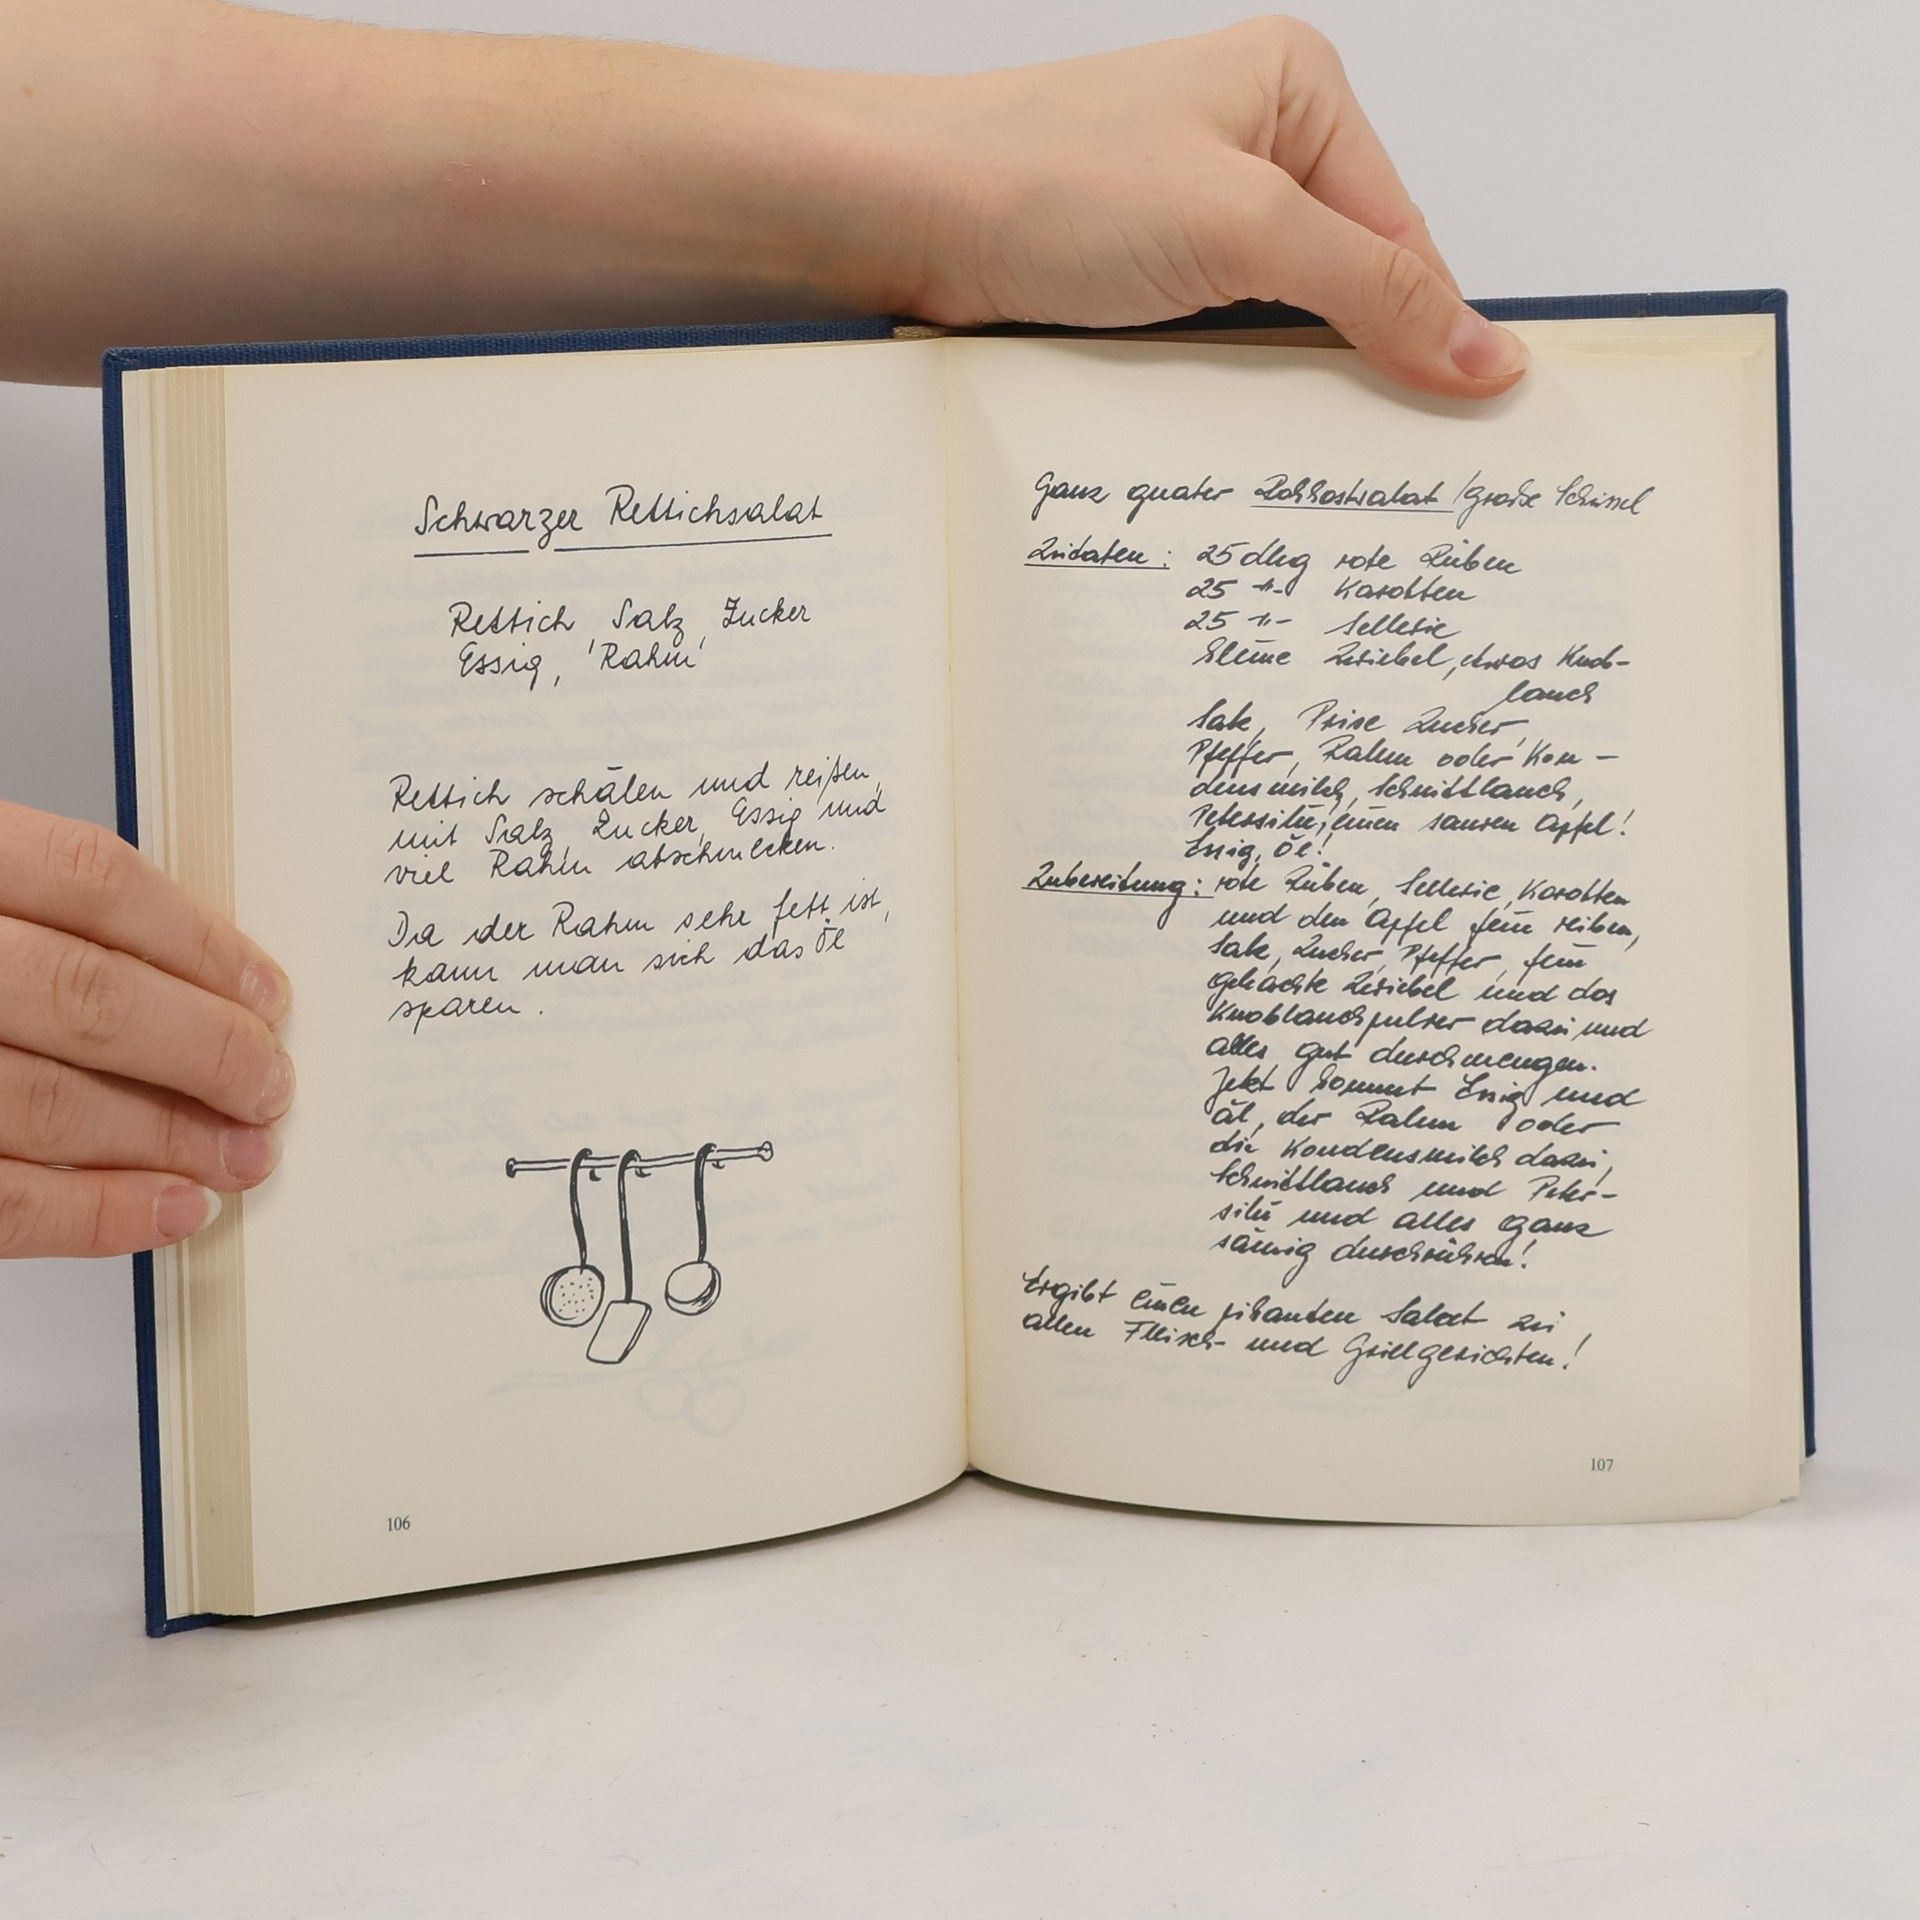 Schwarzer Rettichsalat
Rettich, Salz, Zucker
Essig, Rahm
Rettich schälen und reißen,
mit Salz, Zucker, Essig und
viel Rahm abschmecken.
Da der Rahm sehr fett ist,
kann man sich das Öl
sparen.
106
Ganz guater Rohkostsalat / große Schüssel
Zutaten: 25 dkg rote Rüben
25 -"- Karotten
25 -"- Sellerie
kleine Zwiebel, etwas Knob-
lauch
Salz, Prise Zucker,
Pfeffer, Rahm oder Kon-
densmilch, Schnittlauch,
Petersilie, einen sauren Apfel!
Essig, Öl!
Zubereitung: rote Rüben, Sellerie, Karotten
und den Apfel fein reiben,
Salz, Zucker, Pfeffer, fein
gehackte Zwiebel und das
Knoblauchpulver dazu und
alles gut durchmengen.
Jetzt kommt Essig und
Öl, der Rahm oder
die Kondensmilch dazu,
Schnittlauch und Peter-
silie und alles ganz
sämig durchrühren!
Ergibt einen pikanten Salat zu
allen Fleisch- und Grillgerichten!
107